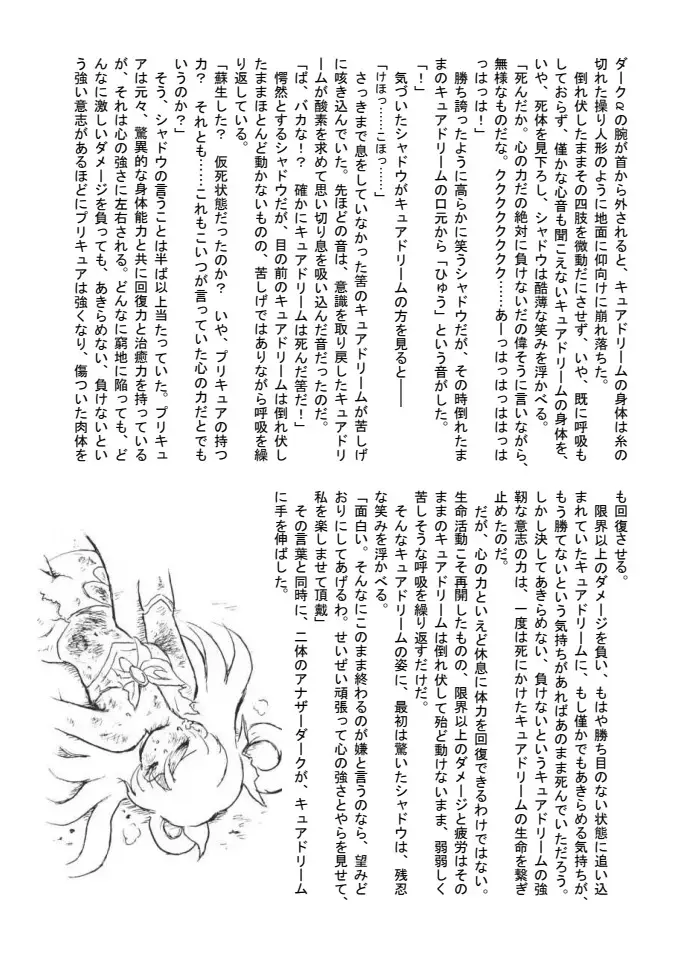 ダークαの腕が首から外されると、キュアドリームの身体は糸の
切れた操り人形のように地面に仰向けに崩れ落ちた。
　倒れ伏したままその四肢を微動だにさせず、いや、既に呼吸も
しておらず、僅かな心音も聞こえないキュアドリームの身体を、
いや、死体を見下ろし、シャドウは酷薄な笑みを浮かべる。
「死んだか。心の力だの絶対に負けないだの偉そうに言いながら、
無様なものだな。ククククククククク……あーっはっはっははっは
っはっは！」
　勝ち誇ったように高らかに笑うシャドウだが、その時倒れたま
まのキュアドリームの口元から「ひゅう」という音がした。
「！」
　気づいたシャドウがキュアドリームの方を見ると――
「けほっ……こほっ……」
　さっきまで息をしていなかった筈のキュアドリームが苦しげ
に咳き込んでいた。先ほどの音は、意識を取り戻したキュアドリ
ームが酸素を求めて思い切り息を吸い込んだ音だったのだ。
「ば、バカな！？　確かにキュアドリームは死んだ筈だ！」
　愕然とするシャドウだが、目の前のキュアドリームは倒れ伏し
たままほとんど動かないものの、苦しげではありながら呼吸を繰
り返している。
「蘇生した？　仮死状態だったのか？　いや、プリキュアの持つ
力？　それとも……これもこいつが言っていた心の力だとでも
いうのか？」
　そう、シャドウの言うことは半ば以上当たっていた。プリキュ
アは元々、驚異的な身体能力と共に回復力と治癒力を持っている
が、それは心の強さに左右される。どんなに窮地に陥っても、ど
んなに激しいダメージを負っても、あきらめない、負けないとい
う強い意志があるほどにプリキュアは強くなり、傷ついた肉体を
も回復させる。
　限界以上のダメージを負い、もはや勝ち目のない状態に追い込
まれていたキュアドリームに、もし僅かでもあきらめる気持ちが、
もう勝てないという気持ちがあればあのまま死んでいただろう。
しかし決してあきらめない、負けないというキュアドリームの強
靭な意志の力は、一度は死にかけたキュアドリームの生命を繋ぎ
止めたのだ。
　だが、心の力といえど休息に体力を回復できるわけではない。
生命活動こそ再開したものの、限界以上のダメージと疲労はその
ままのキュアドリームは倒れ伏して殆ど動けないまま、弱弱しく
苦しそうな呼吸を繰り返すだけだ。
　そんなキュアドリームの姿に、最初は驚いたシャドウは、残忍
な笑みを浮かべる。
「面白い。そんなにこのまま終わるのが嫌と言うのなら、望みど
おりにしてあげるわ。せいぜい頑張って心の強さとやらを見せて、
私を楽しませて頂戴」
　その言葉と同時に、二体のアナザーダークが、キュアドリーム
に手を伸ばした。